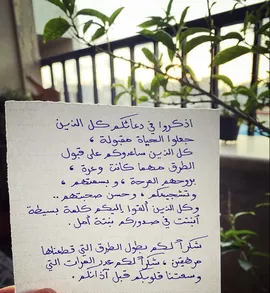 اذكروا في دعائكم كل الذين
جعلوا الحياة مقبولة ،
كل الذين ساعدوكم على قبول
الطرق مهما كانت وعرة ،
بروحهم الفرحة ، و بسمتهم ،
وتشجيعكم ، وحسن صحبتهم ..
وكل الذين ألقوا إليكم كلمة بسيطة
أنبتت في صدوركم بنتة أمل .
شكراً لكم بطول الطرق التي قطعناها
مرهقين ، شكراً لكم بعدد المرات التي
وسعتنا قلوبكم قبل آذانكم .